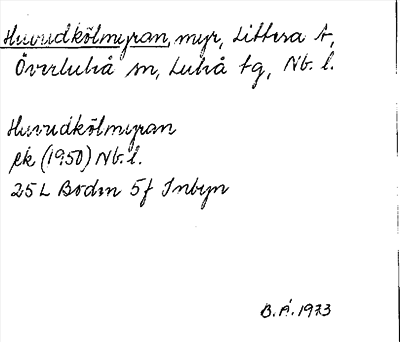 Huvudkölmyran, myr, Littera A,
Överluleå sn, Luleå tg, Nb. l.
Huvudkölmyran
ek (1950) Nb. l.
25 L Boden 5f Inbyn
B.Å. 1973